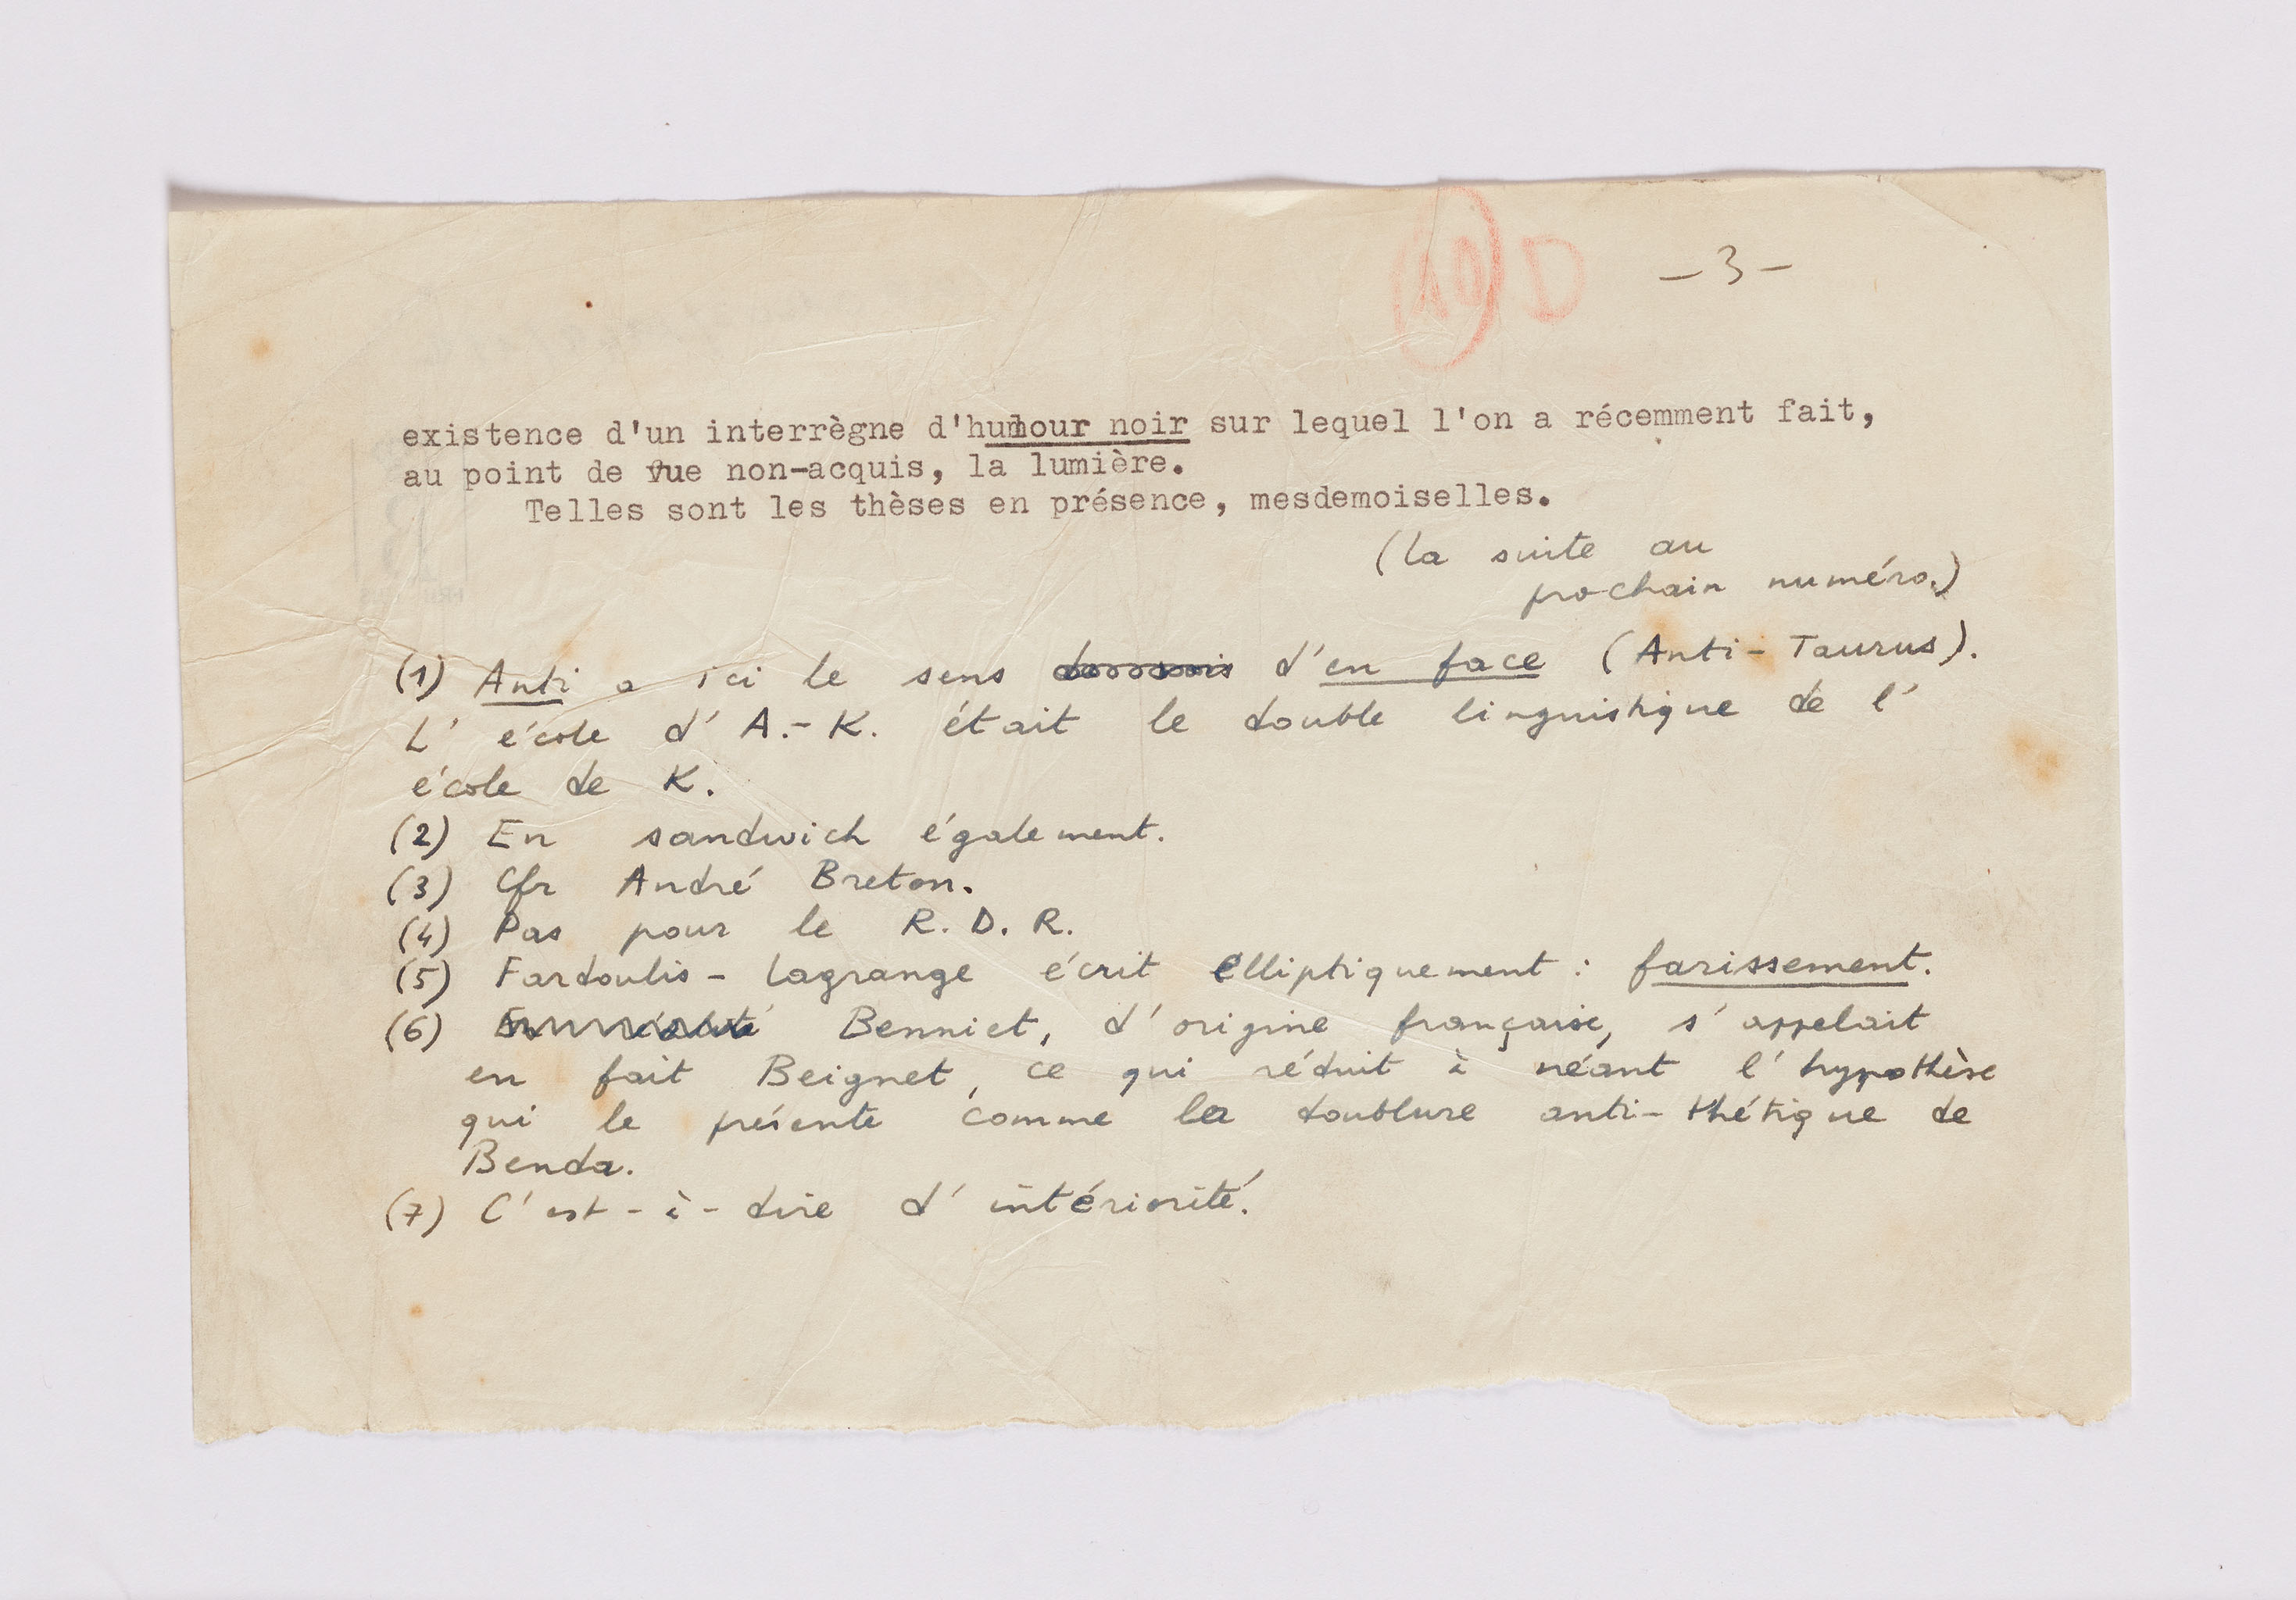 (10) D
- 3 -
existence d'un interrègne d'humour noir sur lequel l'on a récemment fait,
au point de vue non-acquis, la lumière.
Telles sont les thèses en présence, mesdemoiselles.
(La suite au
prochain numéro.)
(1) Anti a ici le sens d'en face (Anti-Taurus).
L'école d'A.-K. était le double linguistique de l'
école de K.
(2) En sandwich également.
(3) Cfr André Breton.
(4) Pas pour le R.D.R.
(5) Fardoulis-Lagrange écrit elliptiquement : farissement.
(6) Benniet, d'origine française, s'appelait
en fait Beignet, ce qui réduit à néant l'hypothèse
qui le présente comme la doublure anti-thétique de
Benda.
(7) C'est-à-dire d'intériorité.